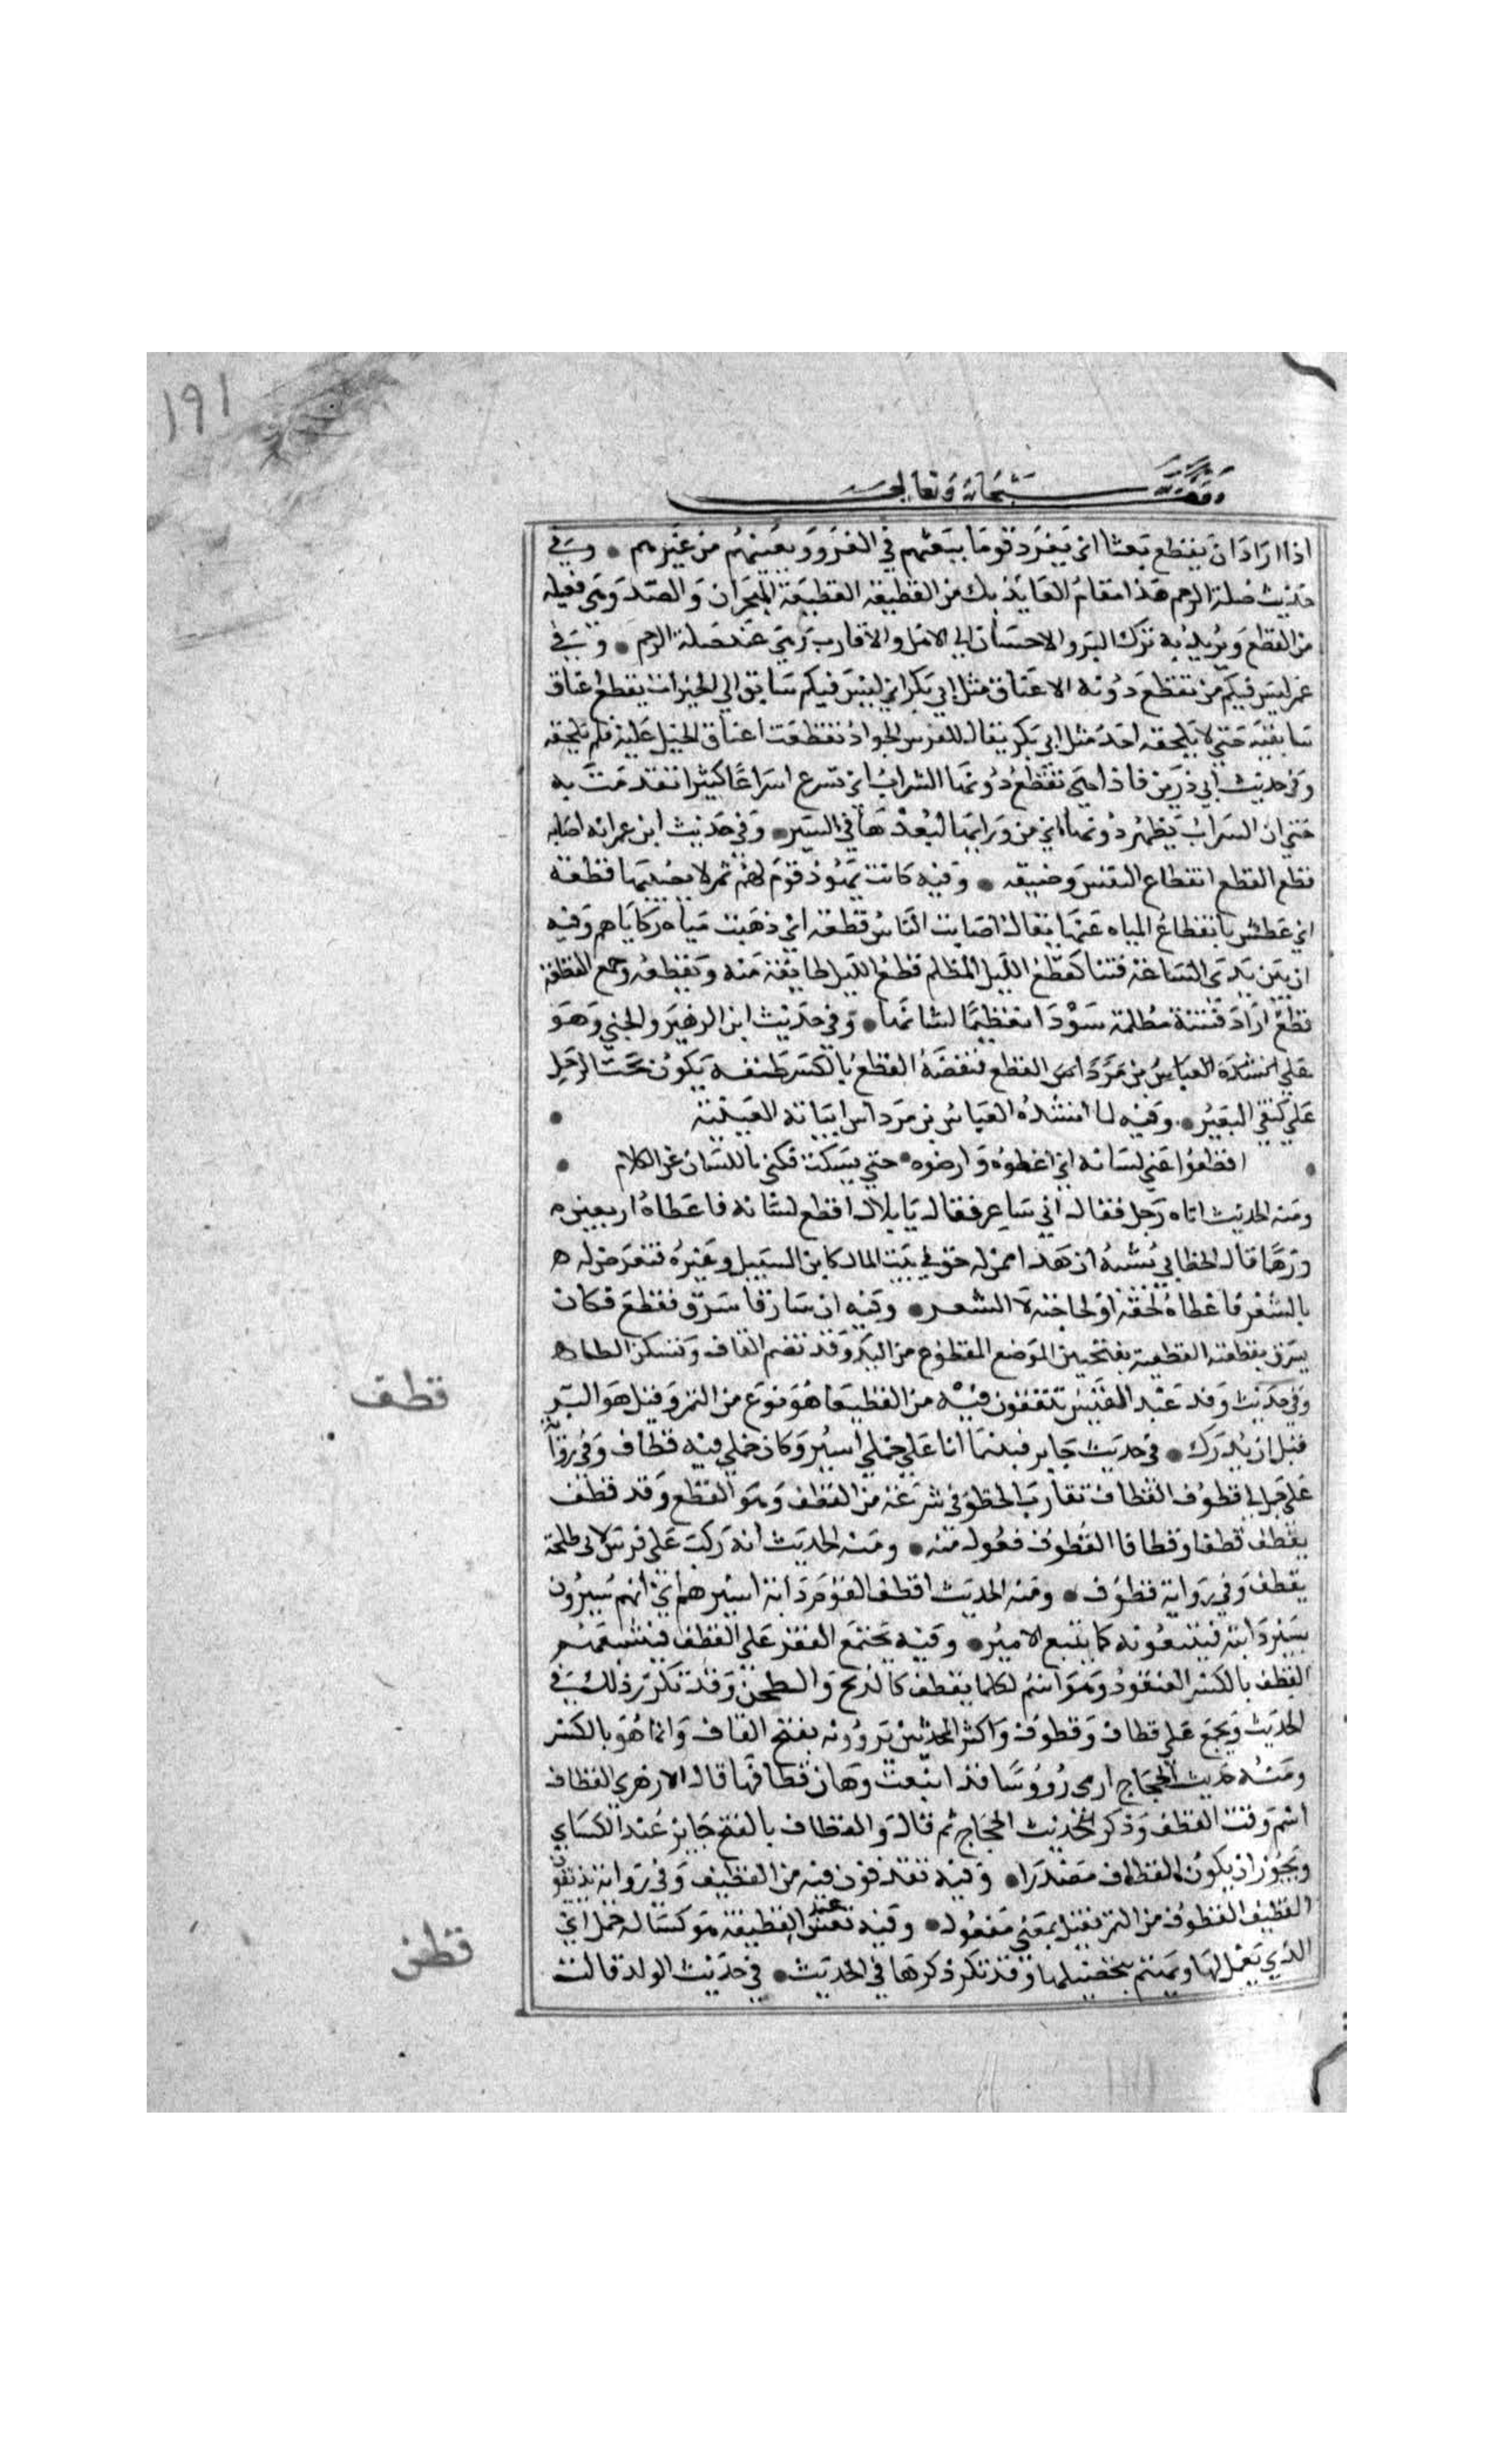 ١٩١
وقف لله سبحانه وتعالى
اذا اراد ان يقطع بعثا اي يفرد قوما يبعثهم في الغزو ويعينهم من غيرهم • وفي
حديث صلة الرحم هذا مقام العايذ بك من القطيعة القطيعة الهجران والصد وهي فعيلة
من القطع ويريد به ترك البر والاحسان الى الاهل والاقارب وهي ضد صلة الرحم • وفي
عمر ليس فيكم من تقطع دونه الاعناق مثل ابي بكر اي ليس فيكم سابق الى الخيرات يقطع عناق
سابقيه حتى لا يلحقه احد مثل ابي بكر يقال للفرس الجواد تقطعت اعناق الخيل عليه فلم تلحقه
وفي حديث ابي ذر من فاذا هي تقطع دونها السراب اي تسرع اسراعا كثيرا تقدمت به
حتى ان السراب يظهر دونها اي من ورايها لبعدها في السير • وفي حديث ابن عمر انه اصابه
قطع القطع انقطاع النفس وضيقه • وفيه كانت يهود قوم لهم ثمر لا يصيبها قطعة
اي عطش بانقطاع المياه عنها يقال اصابت الناس قطعة اي ذهبت مياه ركاياهم وفيه
ان بين يدي الساعة فتنا كقطع الليل المظلم قطع الليل طايفة منه وقطعه وجمع القطعة
قطع اراد فتنة مظلمة سودا تعظيما لشانها • وفي حديث ابن الزهير والجني وهو
على انشده العباس بن مرداس القطع فنفضه القطع بالكسر طنفسة يكون تحت الرحل
على كتفي البعير • وفيه لما انشده العباس بن مرداس ابياته العينية •
• اقطعوا عني لسانه اي اعطوه وارضوه حتى يسكت فكنى باللسان عن الكلام •
ومنه الحديث اتاه رجل فقال اني شاعر فقال يا بلال اقطع لسانه فاعطاه اربعين ه
درهما قال الخطابي يشبه ان هذا ممن له حق في بيت المال كابن السبيل وغيره فتعرض له ه
بالشعر فاعطاه لحقه او لحاجته لا لشعر • وفيه ان سارقا سرق فقطع فكان
يسرق بقطعته القطعة بفتحتين الموضع المقطوع من اليد وقد تضم القاف وتسكن الطاء ه
وفي حديث وفد عبد القيس تقذفون فيه من القطيعا هو نوع من التمر وقيل هو البسر
قبل ان يدرك • في حديث جابر فبينما انا على جملي اسير وكان جملي فيه قطاف وفي رواية
على جمل لي قطوف القطاف تقارب الخطو في سرعة من القطف وهو القطع وقد قطف
يقطف قطفا وقطافا القطوف فعول منه • ومنه الحديث انه ركب على فرس لابي طلحة
يقطف وفي رواية قطوف • ومنه الحديث اقطف القوم دابة اسيرهم اي انهم يسيرون
بسير دابته فيتبعونه كما يتبع الامير • وفيه يجتمع النفر على القطف فيشبعهم
القطف بالكسر العنقود وهو اسم لكلما يقطف كالذبح والطحن وقد تكرر ذلك في
الحديث ويجمع على قطاف وقطوف واكثر المحدثين يروونه بفتح القاف وانما هو بالكسر
ومنه حديث الحجاج ارى رؤوسا قد اينعت وحان قطافها قال الازهري القطاف
اسم وقت القطف وذكر حديث الحجاج ثم قال والقطاف بالفتح جايز عند الكساي
ويجوز ان يكون القطاف مصدرا • وفيه تقذفون فيه من القطيف وفي رواية تذيفون
القطيف القطوف من التمر فعيل بمعنى مفعول • وفيه تعس عبد القطيفة هو كسا له خمل اي
الذي يعمل لها ويهتم بتحصيلها وقد تكرر ذكرها في الحديث • في حديث الولد قالت
قطف
قطن